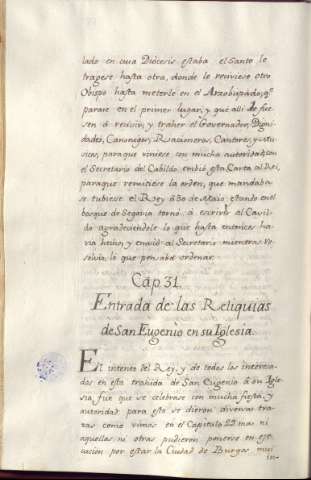 lado en cuia Diócesis estaba el Santo le
tragese hasta otra, donde le recivìese otro
Obispo hasta meterle en el Arzobispado, qe.
parare en el primer lugar, y que allì le fue-
sen à recivir, y traher el Governador, Digni-
dades, Canonigos, Racioneros, Cantores, y mu-
sicas, paraque viniese con mucha autoridad; con
el Secretario del Cabildo embiò esta Carta al Rei,
paraque remitiese la orden, que mandaba
se tubiese el Rey à 30 de Maio, estando en el
bosque de Segovia tornò à escrivir al Cavil-
do agradeciendole lo que hasta entonces ha-
via hecho, y enviò al Secretario mientras re-
solvia lo que pensaba ordenar.
Cap. 31.
Entrada de las Reliquias
de San Eugenio en su Iglesia.
El intento del Rey, y de todos los interesa-
dos en esta trahida de San Eugenio à su Igle-
sia, fue que se celebrase con mucha fiesta, y
autoridad para esto se dieron diversas tra-
zas como vimos en el Capitulo 22 mas ni
aquellas, ni otras pudieron ponerse en eje-
cucion por estar la Ciudad de Burgos mui
in-